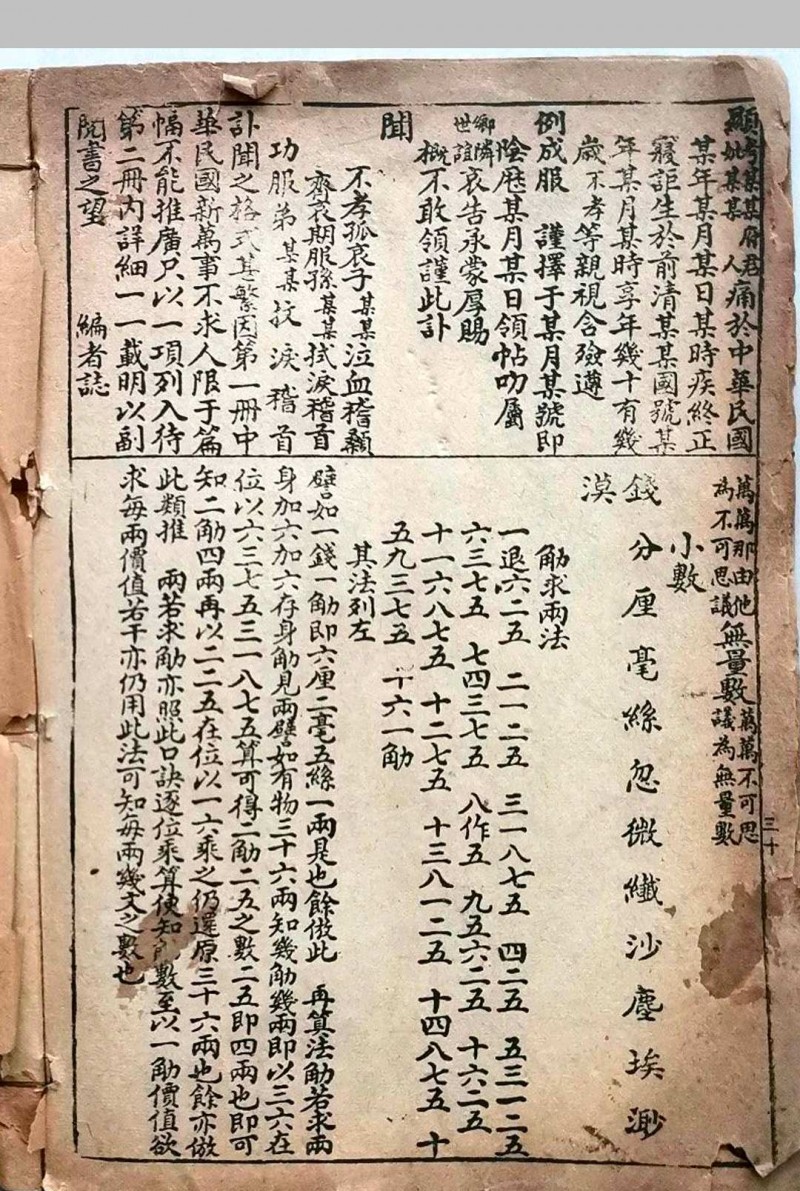 顯考某某府君
妣某某人痛於中華民國
某年某月某日某時疾終正
寢詎生於前清某某國號某
年某月某時享年幾十有幾
歲不孝等親視含殮遵
例成服　謹擇于某月某號即
陰歷某月某日領帖叨屬
鄉隣
世誼哀告承蒙厚賜
概不敢領謹此訃
聞
不孝孤哀子某某泣血稽顙
齊衰期服孫某某拭淚稽首
功服弟某某抆淚稽首
訃聞之格式甚繁因第一冊中
華民國新萬事不求人限于篇
幅不能推廣只以一項列入待
第二冊內詳細一一載明以副
閱書之望　編者誌
萬萬那由他
為不可思議無量數萬萬不可思
議為無量數
三十
小數
錢分厘毫絲忽微纖沙塵埃渺
漠
觔求兩法
一退六二五　二一二五　三一八七五　四二五　五三一二五
六三七五　七四三七五　八作五　九五六二五　十六二五
十一六八七五　十二七五　十三八一二五　十四八七五　十
五九三七五　十六一觔
其法列左
譬如一錢一觔即六厘二毫五絲一兩是也餘倣此　再算法觔若求兩
身加六加六存身觔見兩譬如有物三十六兩知幾觔幾兩即以三六在
位以六三七五三一八七五算可得二觔二五之數二五即四兩也即可
知二觔四兩再以二二五在位以一六乘之仍還原三十六兩也餘亦倣
此類推　兩若求觔亦照此口訣逐位乘算使知數至以一觔價值欲
求每兩價值若干亦仍用此法可知每兩幾文之數也